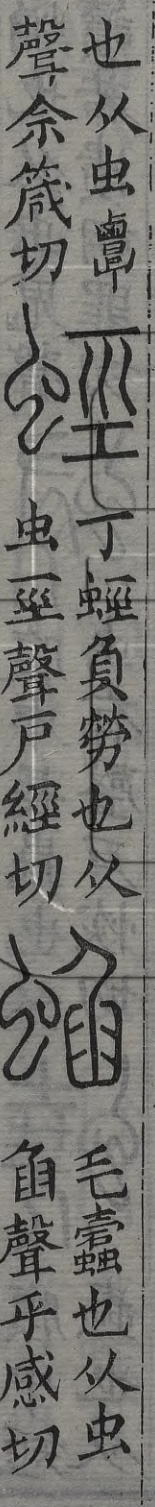 也从虫𪉷
聲余箴切
蛵
丁蛵負勞也从
虫巠聲戶經切
蜭
毛蠹也从虫
臽聲乎感切